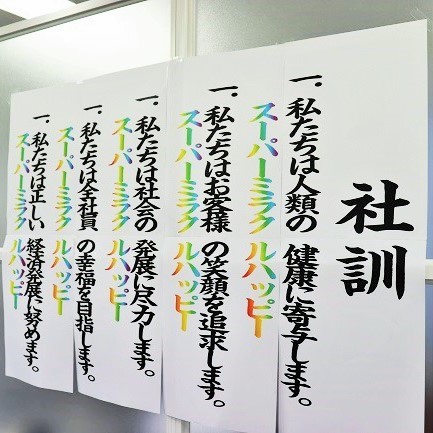 社訓
一.私たちは人類の健康に寄与します。
スーパーミラクルハッピー
一.私たちはお客様の笑顔を追求します。
スーパーミラクルハッピー
一.私たちは社会の発展に尽力します。
スーパーミラクルハッピー
一.私たちは全社員の幸福を目指します。
スーパーミラクルハッピー
一.私たちは正しい経済発展に努めます。
スーパーミラクルハッピー